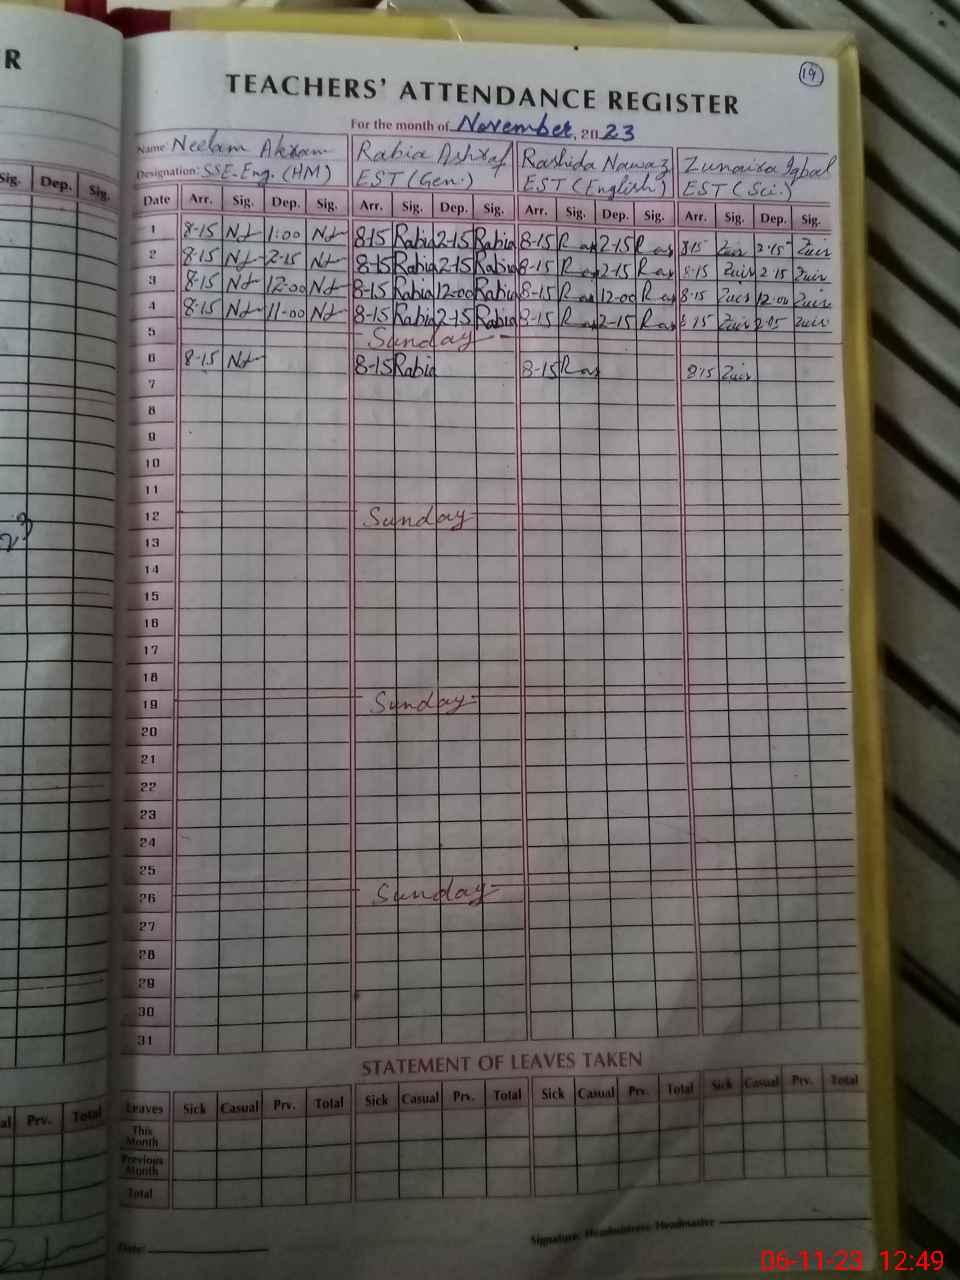 R
19
TEACHERS' ATTENDANCE REGISTER
For the month of November, 2023
Name: Neelam Akram Rabia Ashraf Rashida Nawaz Zunaira Iqbal
Designation: SSE-Eng. (HM) EST (Gen.) EST (English) EST (Sci.)
Sig. Dep. Sig.
Date Arr. Sig. Dep. Sig. Arr. Sig. Dep. Sig. Arr. Sig. Dep. Sig. Arr. Sig. Dep. Sig.
1 8-15 1:00 8-15 Rabia 2-15 Rabia 8-15 2-15 8-15 2-15
2 8-15 2-15 8-15 Rabia 2-15 Rabia 8-15 2-15 8-15 2-15
3 8-15 12:00 8-15 Rabia 12:00 Rabia 8-15 12:00 8-15 12:00
4 8-15 11:00 8-15 Rabia 2-15 Rabia 8-15 2-15 8-15
5 Sunday
6 8-15 8-15 Rabia 8-15 8-15
7
8
9
10
11
12 Sunday
13
14
15
16
17
18
19 Sunday
20
21
22
23
24
25
26 Sunday
27
28
29
30
31
STATEMENT OF LEAVES TAKEN
Prv. Total
Leaves Sick Casual Prv. Total Sick Casual Prv. Total Sick Casual Prv. Total Sick Casual Prv. Total
This
Month
Previous
Month
Total
Date:
Signature: Headmistress/Headmaster
06-11-23 12:49